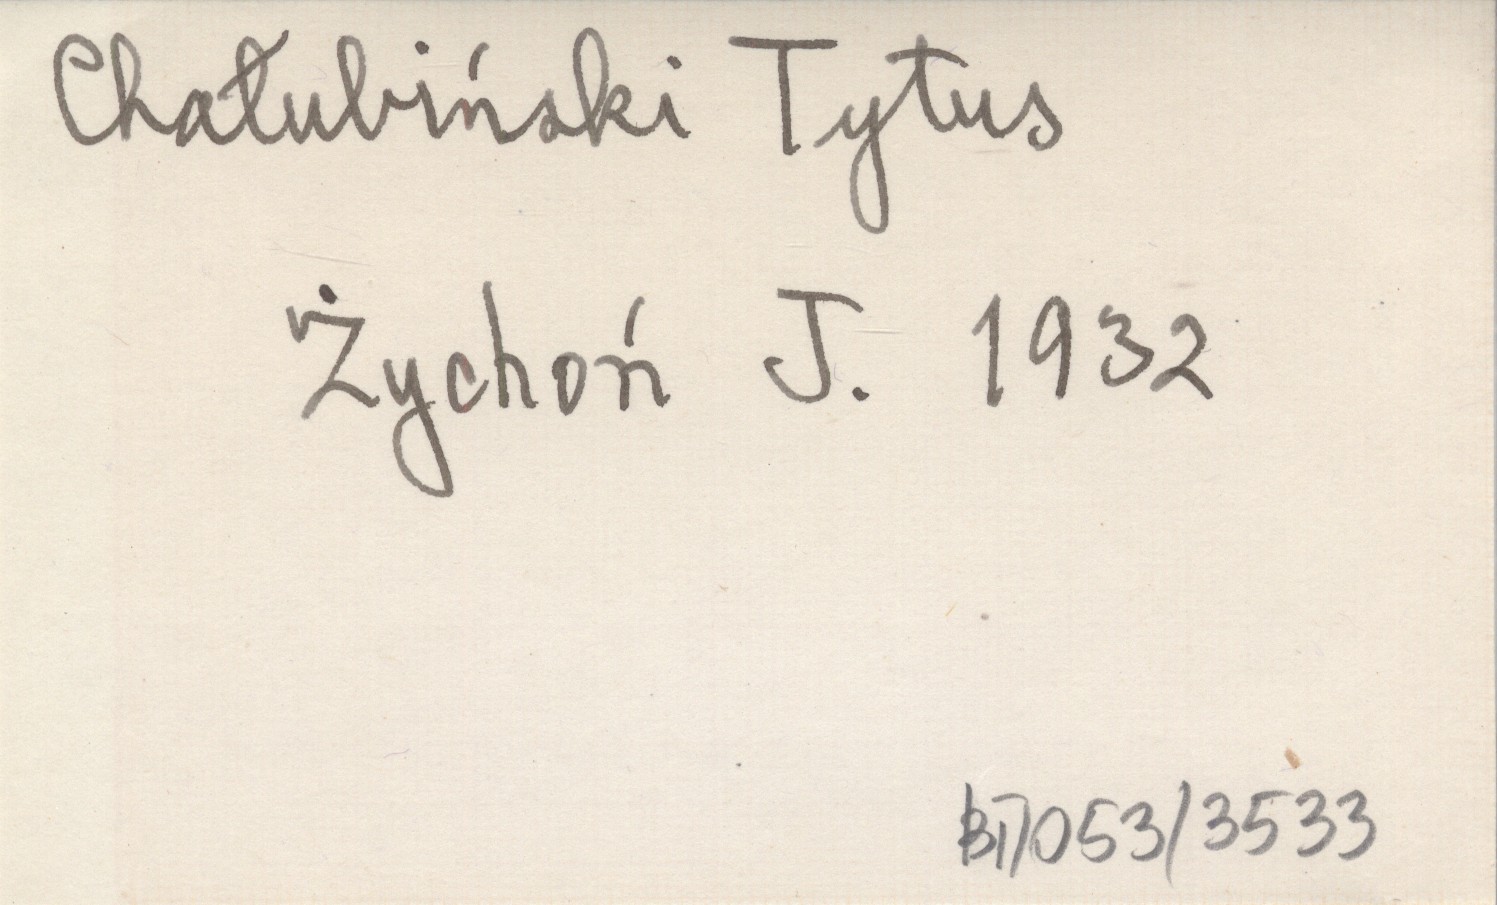 Chałubiński Tytus
Żychoń J. 1932
BI/053/3533